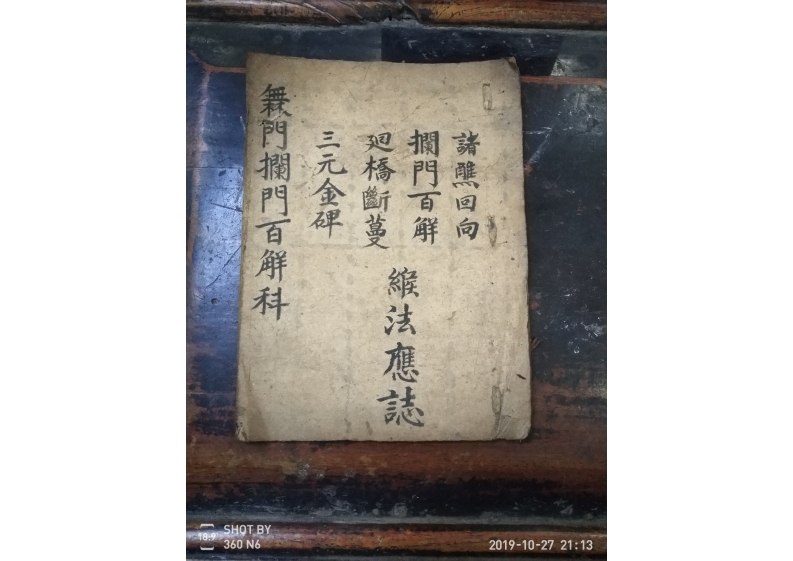 諸醮回向
攔門百解
廻橋斷蔓
三元金碑
緱法應誌
無門攔門百解科
SHOT BY
360 N6
18:9
2019-10-27 21:13